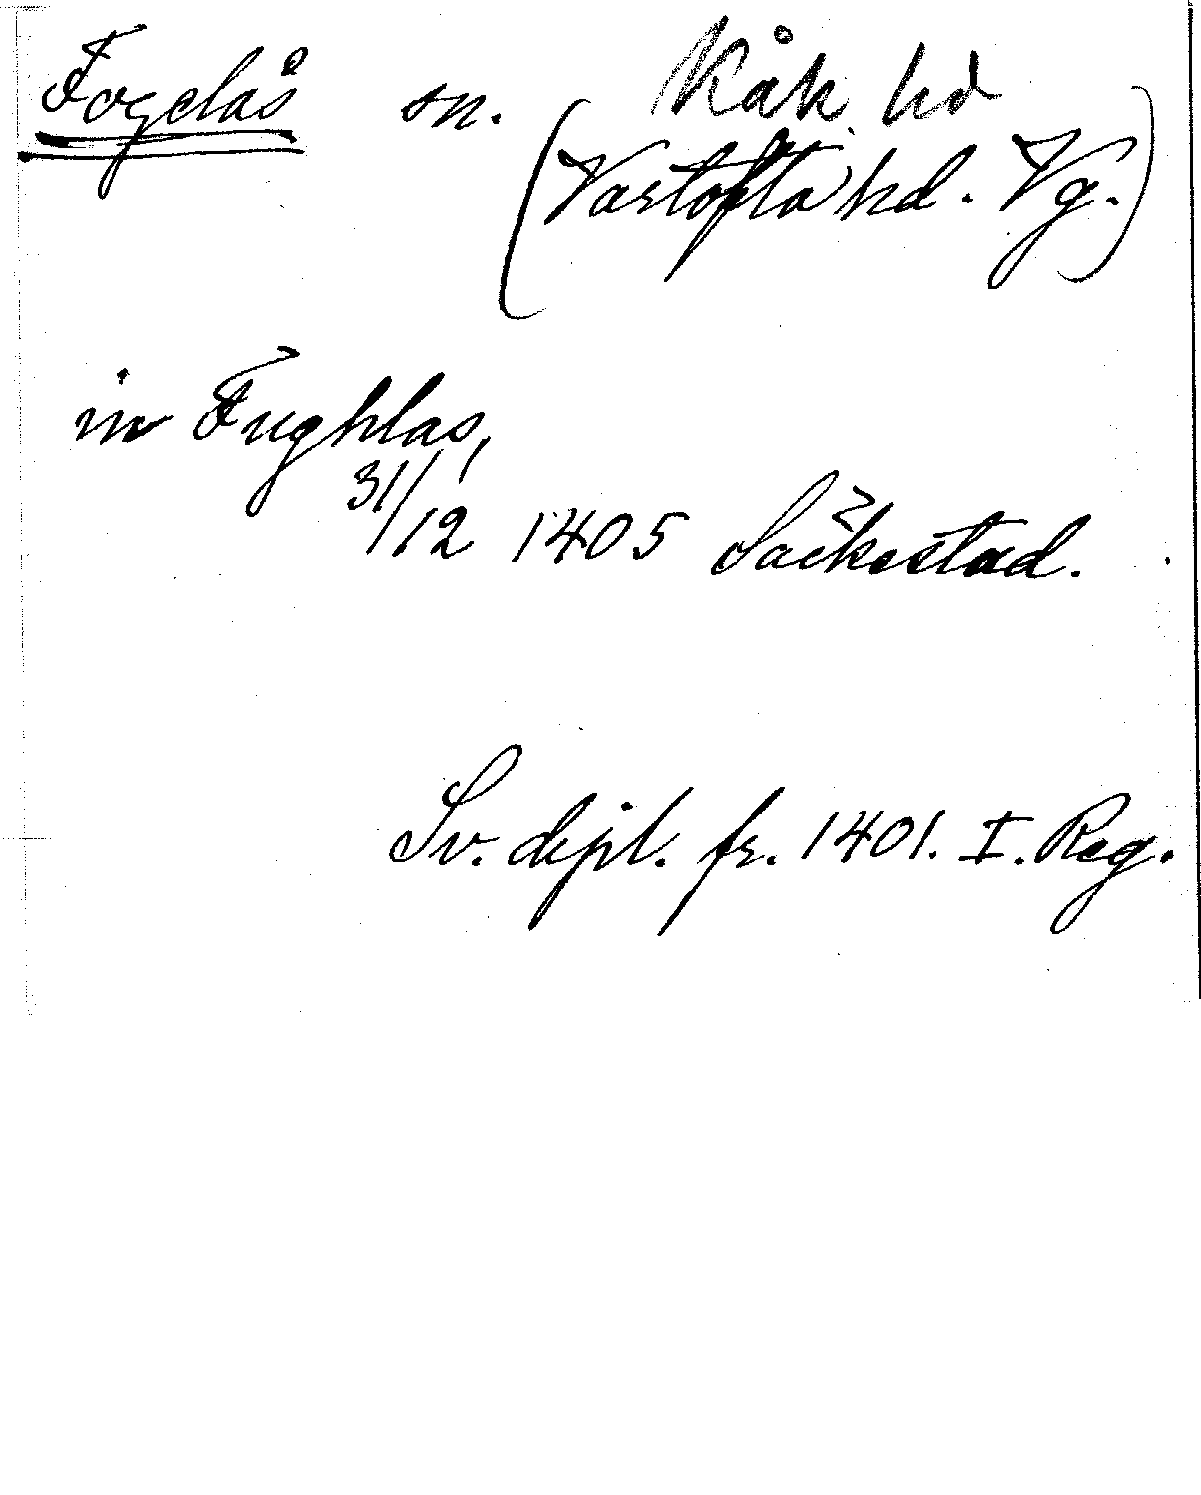 Fogelås sn. Kåk. hd
(Vartofta hd. Vg.)
in Fughlas,
31/12 1405 Sackestad.
Sv. dipl. fr. 1401. I. Reg.